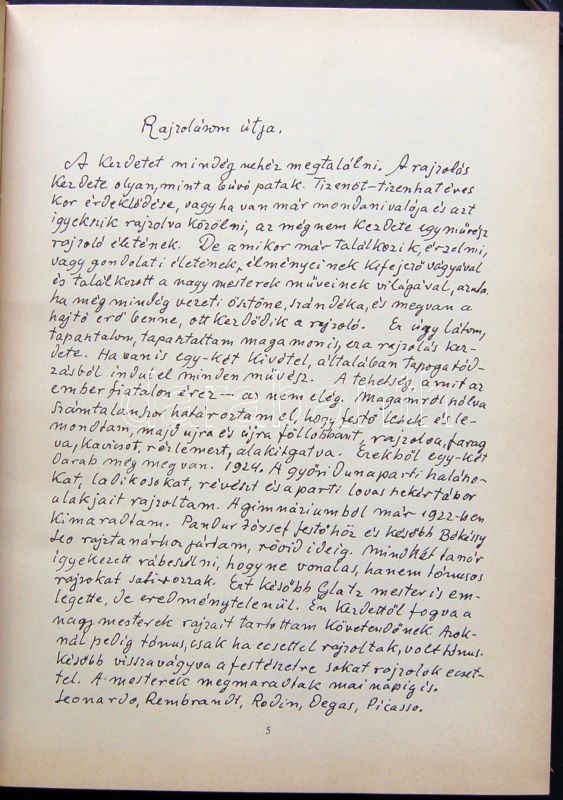 Rajzolásom útja.
A Kezdetet mindég nehéz megtalálni. A rajzolás
Kezdete olyan, mint a búvó patak. Tizenöt-tizenhat éves
Kor érdeklődése, vagy ha van már mondanivalója és azt
igyekszik rajzolva közölni, az még nem Kezdete egy művész
rajzoló életének. De amikor már találkozik, érzelmi,
vagy gondolati életének, élményeinek Kifejező vágyával
és találkozott a nagy mesterek műveinek világával, azután
ha még mindég vezeti ösztöne, szándéka, és megvan a
hajtó erő benne, ott Kezdődik a rajzoló. Én úgy látom,
tapantalom, tapantaltam magamon is, ez a rajzolás kez-
dete. Ha van is egy-két Kivétel, általában tapogatód-
zásból indul el minden művész. A tehetség, amit az
ember fiatalon érez – az nem elég. Magamról szólva
számtalanszor határoztam el, hogy festő leszek és le-
mondtam, majd újra és újra föllobbant, rajzolva, farag
va, Kavicsot, rézlemezt, alakítgatva. Ezekből egy-két
darab még megvan. 1924. A győri Dunaparti halászo-
Kat, ladikosokat, révészt és a parti lovas
alakjait rajzoltam. A gimnáziumból már 1922-ben
Kimaradtam. Pandur József festőhöz és Később Békéssy
Leo rajztanárhoz jártam, rövid ideig. Mindkét tanár
igyekezett rábeszélni, hogy ne vonalas, hanem tónusos
rajzokat Ezt Később Glatz mester is em-
legette, de eredménytelenül. Én Kezdettől fogva a
nagy mesterek rajzait tartottam Követendőnek. Azok-
nál pedig tónus, csak ha ecsettel rajzoltak, volt tónus.
Később visszavágyva a festészetre sokat rajzolok ecset-
tel. A mesterek megmaradtak mai napig is.
Leonardo, Rembrandt, Rodin, Degas, Picasso.
5
darabanth